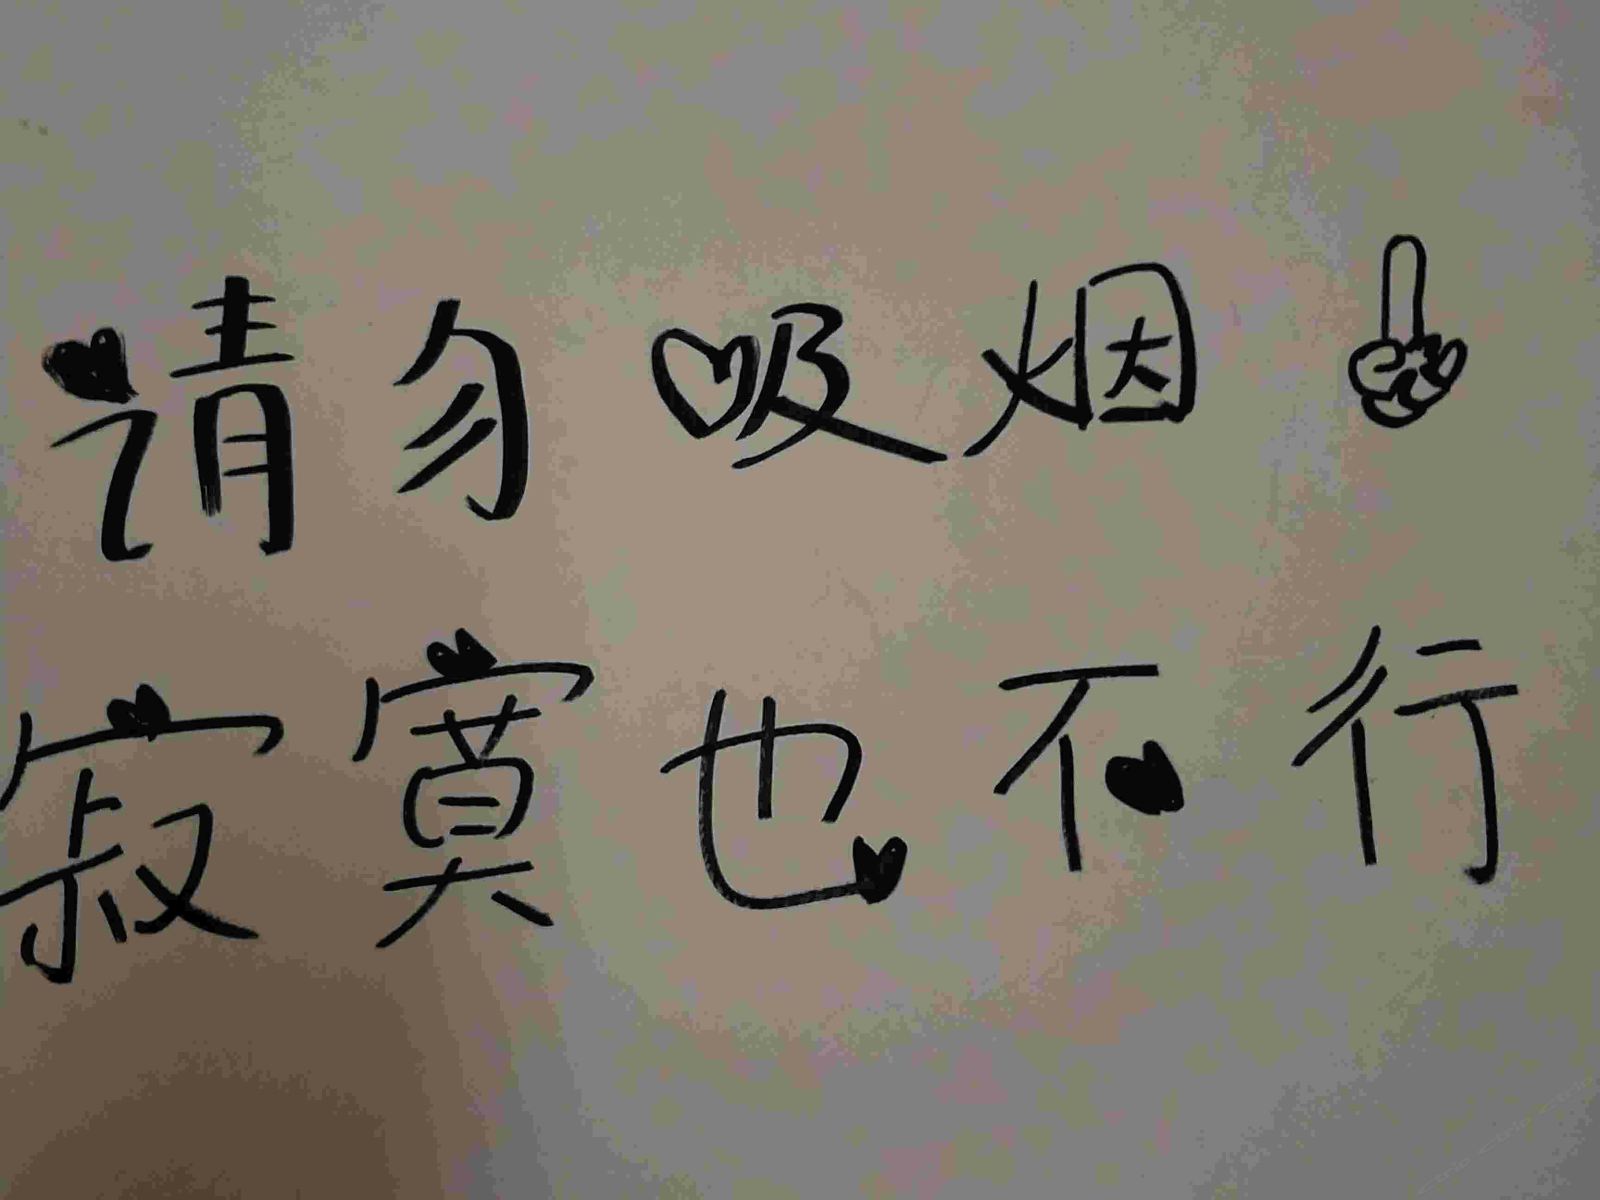 请勿吸烟
寂寞也不行